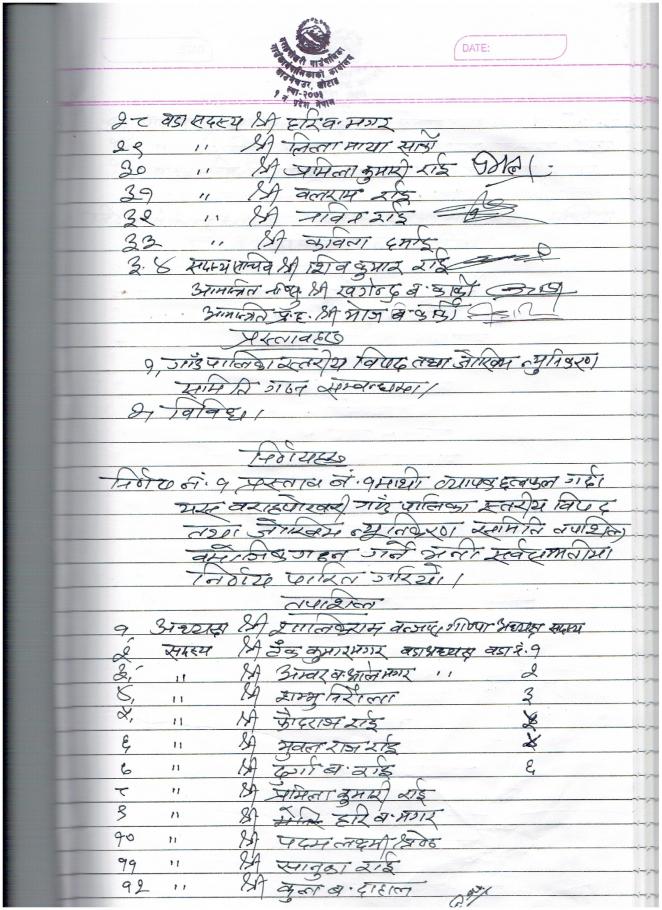 वराहपोखरी गाउँपालिका
गाउँकार्यपालिकाको कार्यालय
खोटाङ
२०७३
१ नं. प्रदेश, नेपाल
DATE:
२८ वडा सदस्य श्री हरि ब. मगर
२९ " श्री लिला माया सार्की
३० " श्री प्रमिला कुमारी राई
३१ " श्री बलराम राई
३२ " श्री नविन राई
३३ " श्री कविता दर्माई
३.४ सदस्य सचिव श्री शिव कुमार राई
आमन्त्रित श्री खगेन्द्र ब. कार्की
आमन्त्रित प्र.ह. श्री भोज ब. कार्की
प्रस्तावहरु
१, गाउँपालिका स्तरीय विपद तथा जोखिम न्युनिकरण
समिति गठन सम्बन्धमा।
२ विविध।
निर्णयहरु
निर्णय नं. १ प्रस्ताव नं. १ माथी व्यापक छलफल गर्दा
यस वराहपोखरी गाउँपालिका स्तरीय विपद
तथा जोखिम न्युनिकरण समिति तपाशिल
बमोजिम गठन गर्ने भनी सर्वसम्मतीमा
निर्णय पारित गरियो।
तपाशिल
१, अध्यक्ष श्री गा.पा अध्यक्ष सदस्य
२, सदस्य श्री टंक कुमार मगर वडाअध्यक्ष वडा नं. १
३, " श्री अम्बर ब. मगर " २
४, " श्री शम्भु निरौला ३
५, " श्री राई
६ " श्री भुवन राज राई
७ " श्री दुर्गा ब. राई ६
८ " श्री प्रमिला कुमारी राई
९ " श्री हरि ब. मगर
१० " श्री पदम लक्ष्मी
११ " श्री सानुका राई
१२ " श्री कुल ब. दाहाल